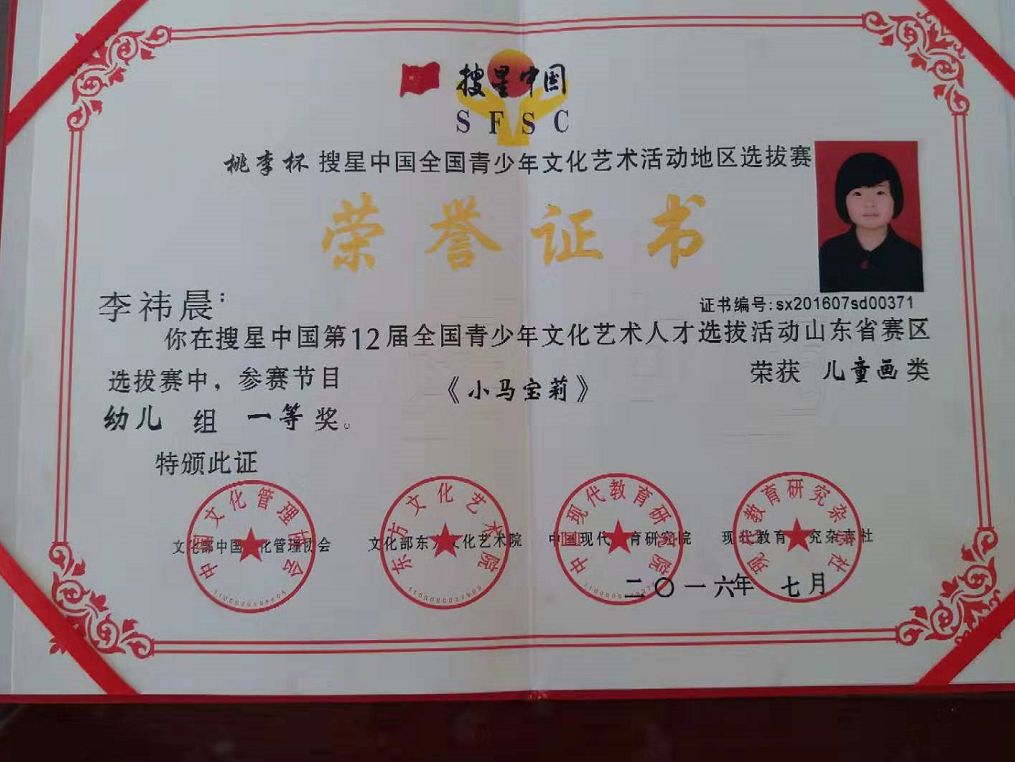 搜星中国
SFSC
桃李杯 搜星中国全国青少年文化艺术活动地区选拔赛
荣誉证书
李祎晨：
证书编号:sx201607sd00371
你在搜星中国第12届全国青少年文化艺术人才选拔活动山东省赛区
选拔赛中，参赛节目 《小马宝莉》 荣获 儿童画 类
幼儿 组 一等 奖。
特颁此证
中国文化管理协会
东方文化艺术院
中国现代教育研究院
现代教育研究杂志社
文化部中国文化管理协会 文化部东方文化艺术院 中国现代教育研究院 现代教育研究杂志社
二〇一六年 七月